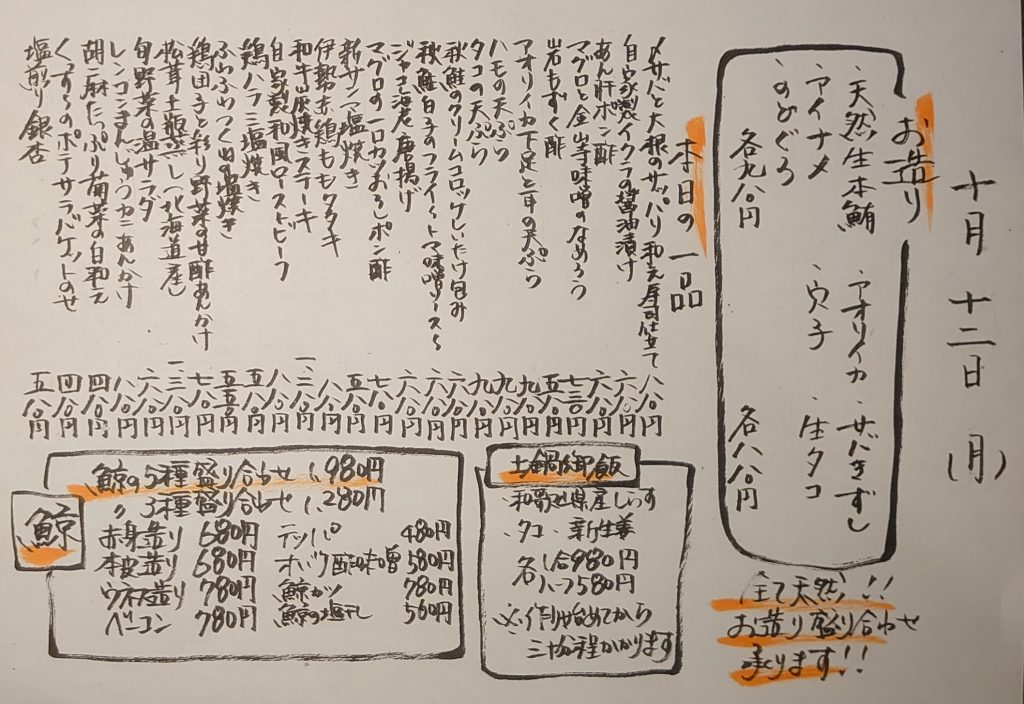 十月 十二日 (月)
お造り
・天然生本鮪 ・アオリイカ ・サバきずし
・アイナメ ・穴子 ・生タコ
・のどぐろ
各九八〇円 各八八〇円
全て天然!!
お造り盛り合わせ
承ります!!
本日の一品
〆サバと大根のサッパリ和え寿司仕立て 八八〇円
自家製イクラの醤油漬け 六八〇円
あん肝ポン酢 六八〇円
マグロと金山寺味噌のなめろう 七三〇円
岩もずく酢 五八〇円
アオリイカ下足と耳の天ぷら 九八〇円
ハモの天ぷら 九八〇円
タコの天ぷら 九八〇円
秋鮭のクリームコロッケしいたけ包み 六八〇円
秋鮭白子のフライ〜トマト味噌ソース〜 六八〇円
ジャコ海老唐揚げ 六八〇円
マグロの一口カツおろしポン酢 七八〇円
新サンマ塩焼き 五八〇円
伊勢赤鶏ももタタキ 八八〇円
和牛炭焼きステーキ 一、二八〇円
自家製和風ローストビーフ 八八〇円
鶏ハラミ塩焼き 五八〇円
ふわふわつくね塩焼き 五五〇円
鶏団子と彩り野菜の甘酢あんかけ 七八〇円
松茸土瓶蒸し(北海道産) 一、三八〇円
旬野菜の温サラダ 六八〇円
レンコンまんじゅうカニあんかけ 八八〇円
胡麻たっぷり菊菜の白和え 四八〇円
くっするのポテサラバゲットのせ 四八〇円
塩煎り銀杏 五八〇円
土鍋御飯
和歌山県産しらす
タコ・新生姜
各 1合980円
ハーフ580円
※作り始めてから
三十分程かかります
鯨
鯨の5種盛り合わせ 1,980円
〃 3種盛り合わせ 1,280円
赤身造り 680円 テッパ 480円
本皮造り 680円 オバケ酢味噌 580円
ウネス造り 780円 鯨カツ 780円
ベーコン 780円 鯨の塩干し 560円